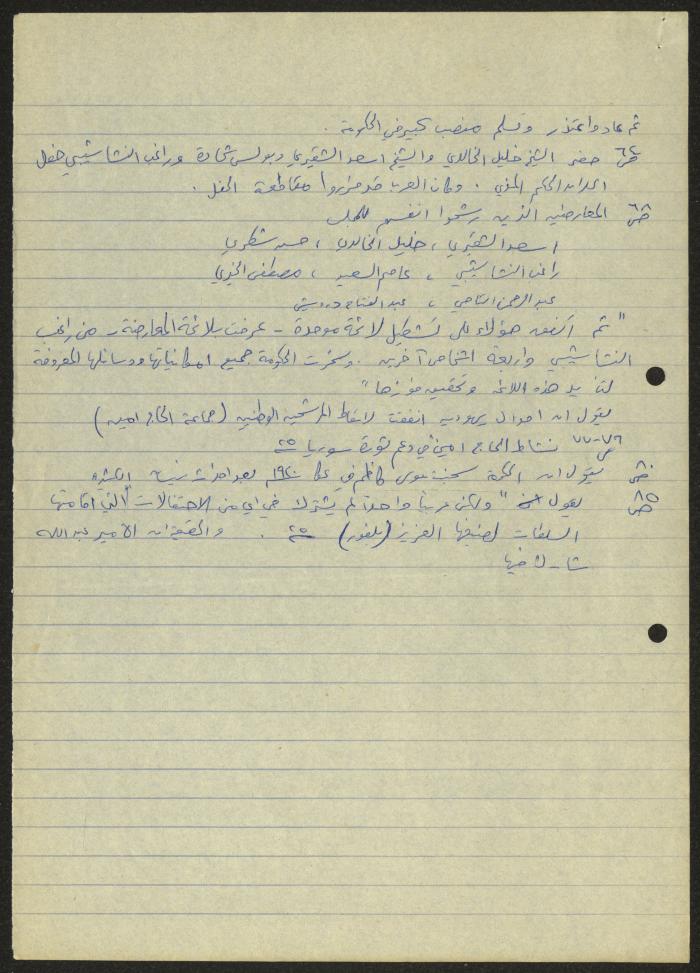 ثم عاد واعتذر وتسلم منصب كبير في الحكومة .
ص٦٤ حضر الشيخ خليل الخالدي والشيخ اسعد الشقيري وبولس شحادة وراغب النشاشيبي حفل
الحاكم المدني . وكان العرب قد قرروا مقاطعة الحفل .
ص٦٦ المعارضين الذين رشحوا انفسهم للمجلس
اسعد الشقيري ، خليل الخالدي ، حسن شكري
راغب النشاشيبي ، عاصم السعيد ، مصطفى الخيري
عبد الرحمن التاجي ، عبد الفتاح درويش
" ثم اتفق هؤلاء على تشكيل لائحة موحدة - عرفت بلائحة المعارضة - من راغب
النشاشيبي واربعة اشخاص آخرين . وسخرت الحكومة جميع امكانياتها ووسائلها المعروفة
لتأييد هذه اللائحة وتحقيق فوزها "
يقول ان اموال يهودية انفقت لاسقاط المرشحين الوطنيين (جماعة الحاج امين)
ص٧٦-٧٧ نشاط الحاج امين في دعم ثورة سوريا ٢٥
يقول ان الحكومة سجنت موسى كاظم في عكا ١٩٢٠ بعد احداث
ص٨٥ يقول " ولكن عربيا واحدا لم يشترك في اي من الاحتفالات التي اقامتها
السلطات لضيفها العزيز (بلفور) ٢٥ . والحقيقة ان الامير عبدالله
شارك فيها